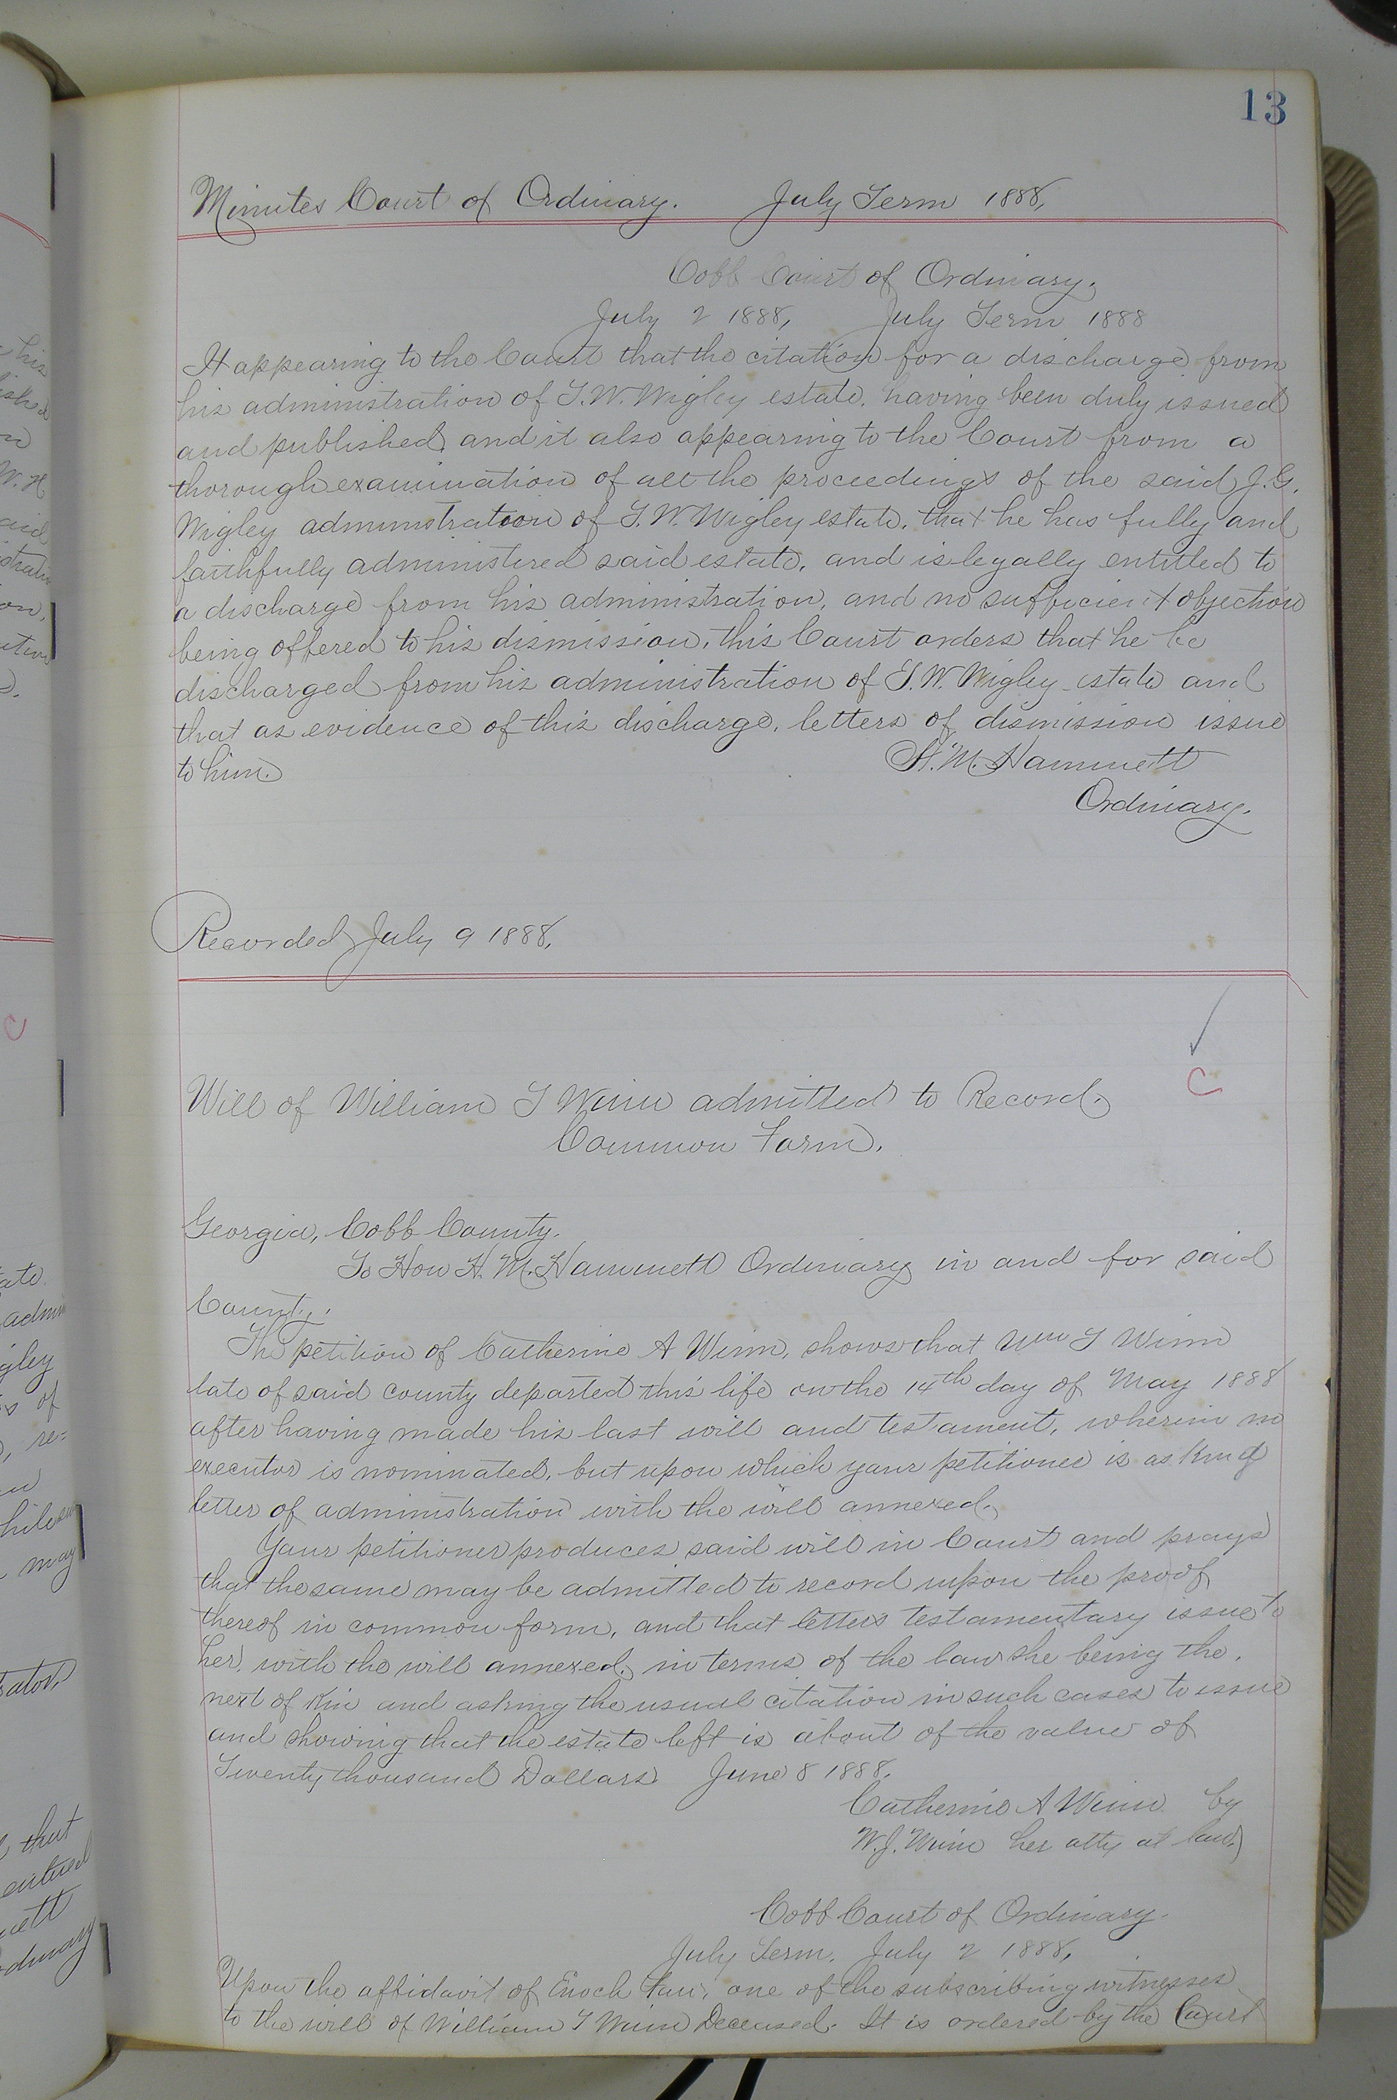 13
Minutes Court of Ordinary. July Term 1888,
Cobb Court of Ordinary,
July 2 1888, July Term 1888
It appearing to the Court that the citation for a discharge from
his administration of T. W. Wigley estate, having been duly issued
and published, and it also appearing to the Court from a
thorough examination of all the proceedings of the said J. G.
Wigley administration of T. W. Wigley estate, that he has fully and
faithfully administered said estate, and is legally entitled to
a discharge from his administration, and no sufficient objection
being offered to his dismission, this Court orders that he be
discharged from his administration of T. W. Wigley estate and
that as evidence of this discharge, letters of dismission issue
to him.
H. M. Hammett
Ordinary.
Recorded July 9 1888,
C
Will of William T Winn admitted to Record.
Common Form.
Georgia, Cobb County.
To Hon H. M. Hammett Ordinary in and for said
County.
The petition of Catherine A Winn, shows that Wm T Winn
late of said county departed this life on the 14th day of May 1888
after having made his last will and testament, wherein no
executor is nominated, but upon which your petitioner is asking
letter of administration with the will annexed.
Your petitioner produces said will in Court and prays
that the same may be admitted to record upon the proof
thereof in common form, and that letters testamentary issue to
her, with the will annexed, in terms of the law she being the,
next of kin and asking the usual citation in such cases to issue
and showing that the estate left is about of the value of
Twenty thousand Dollars June 8 1888.
Catherine A Winn by
W. J. Winn her atty at law.
Cobb Court of Ordinary.
July Term, July 2 1888,
Upon the affidavit of Enoch Faw, one of the subscribing witnesses
to the will of William T Winn Deceased. It is ordered by the Court